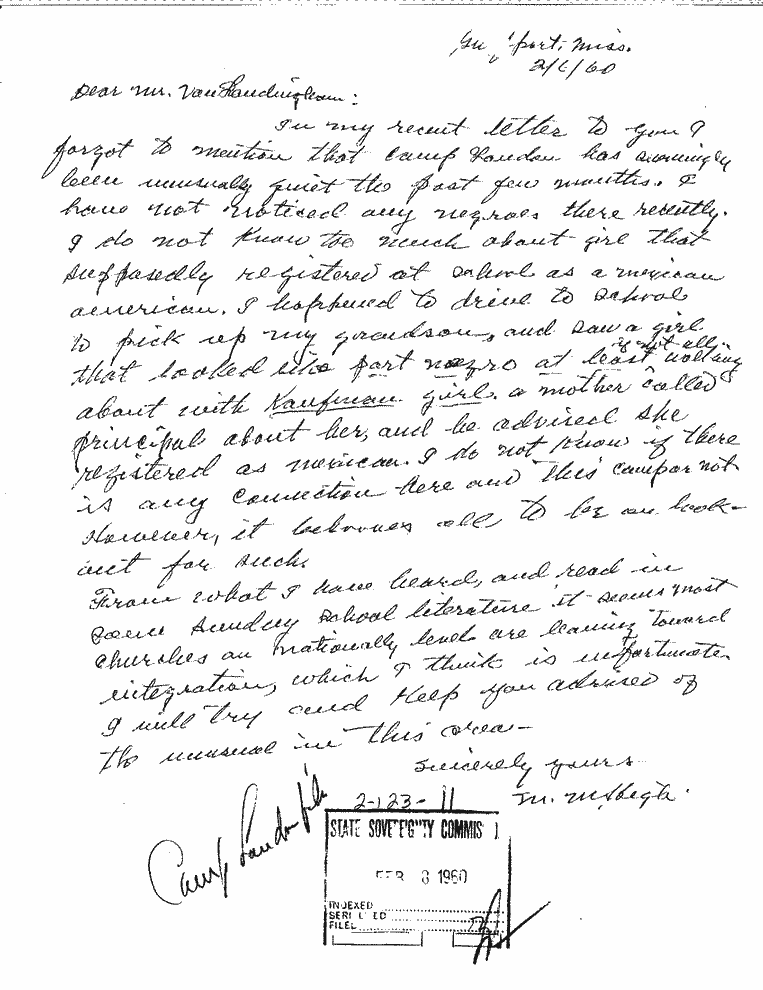 port, Miss.
2/6/60
Dear Mr. Van Landingham:
In my recent letter to you I
forgot to mention that Camp Landon has seemingly
been unusually quiet the past few months. I
have not noticed any negroes there recently.
I do not know too much about girl that
supposedly registered at school as a mexican
american. I happened to drive to school
to pick up my grandson, and saw a girl
that looked like part negro at least if not all. walking
about with Kaufman girl. a mother called
principal about her, and he advised she
registered as mexican. I do not know if there
is any connection here and this camp or not
However, it behooves all to be on look-
out for such.
From what I have heard, and read in
some Sunday school literature it seems most
churches on nationally level are leaning toward
integration, which I think is unfortunate.
I will try and keep you advised of
the unusual in this area-
Sincerely yours
M.
Camp Landon file
2-123-11
STATE SOVEREIGNTY COMMIS
FEB 8 1960
INDEXED
SERIALIZED
FILED